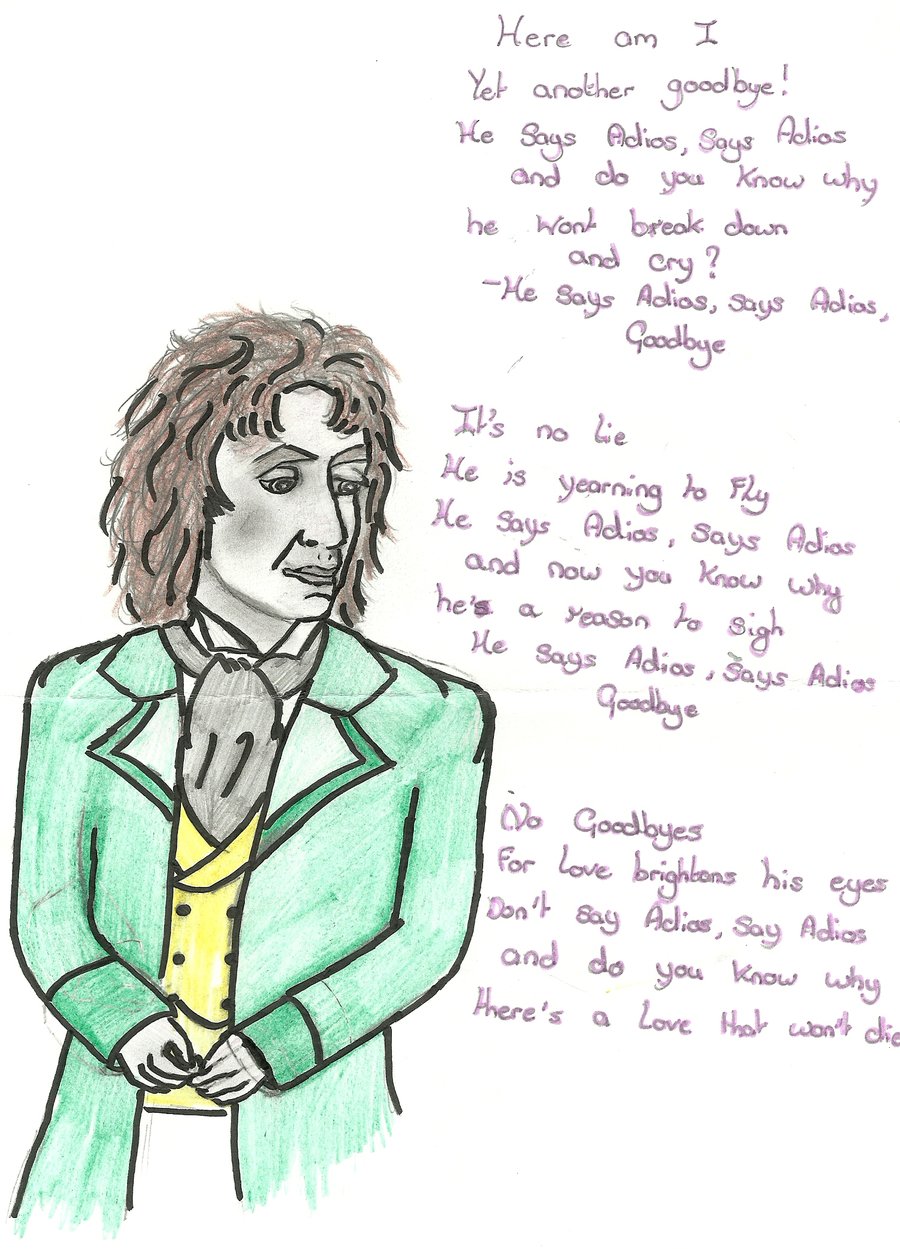 Here am I
Yet another goodbye!
He Says Adios, Says Adios
and do you know why
he wont break down
and cry?
-He Says Adios, says Adios,
Goodbye
It's no lie
He is yearning to Fly
He Says Adios, Says Adios
and now you know why
he's a reason to sigh
He Says Adios, Says Adios
Goodbye
No Goodbyes
For love brightens his eyes
Don't say Adios, Say Adios
and do you know why
there's a love that won't die